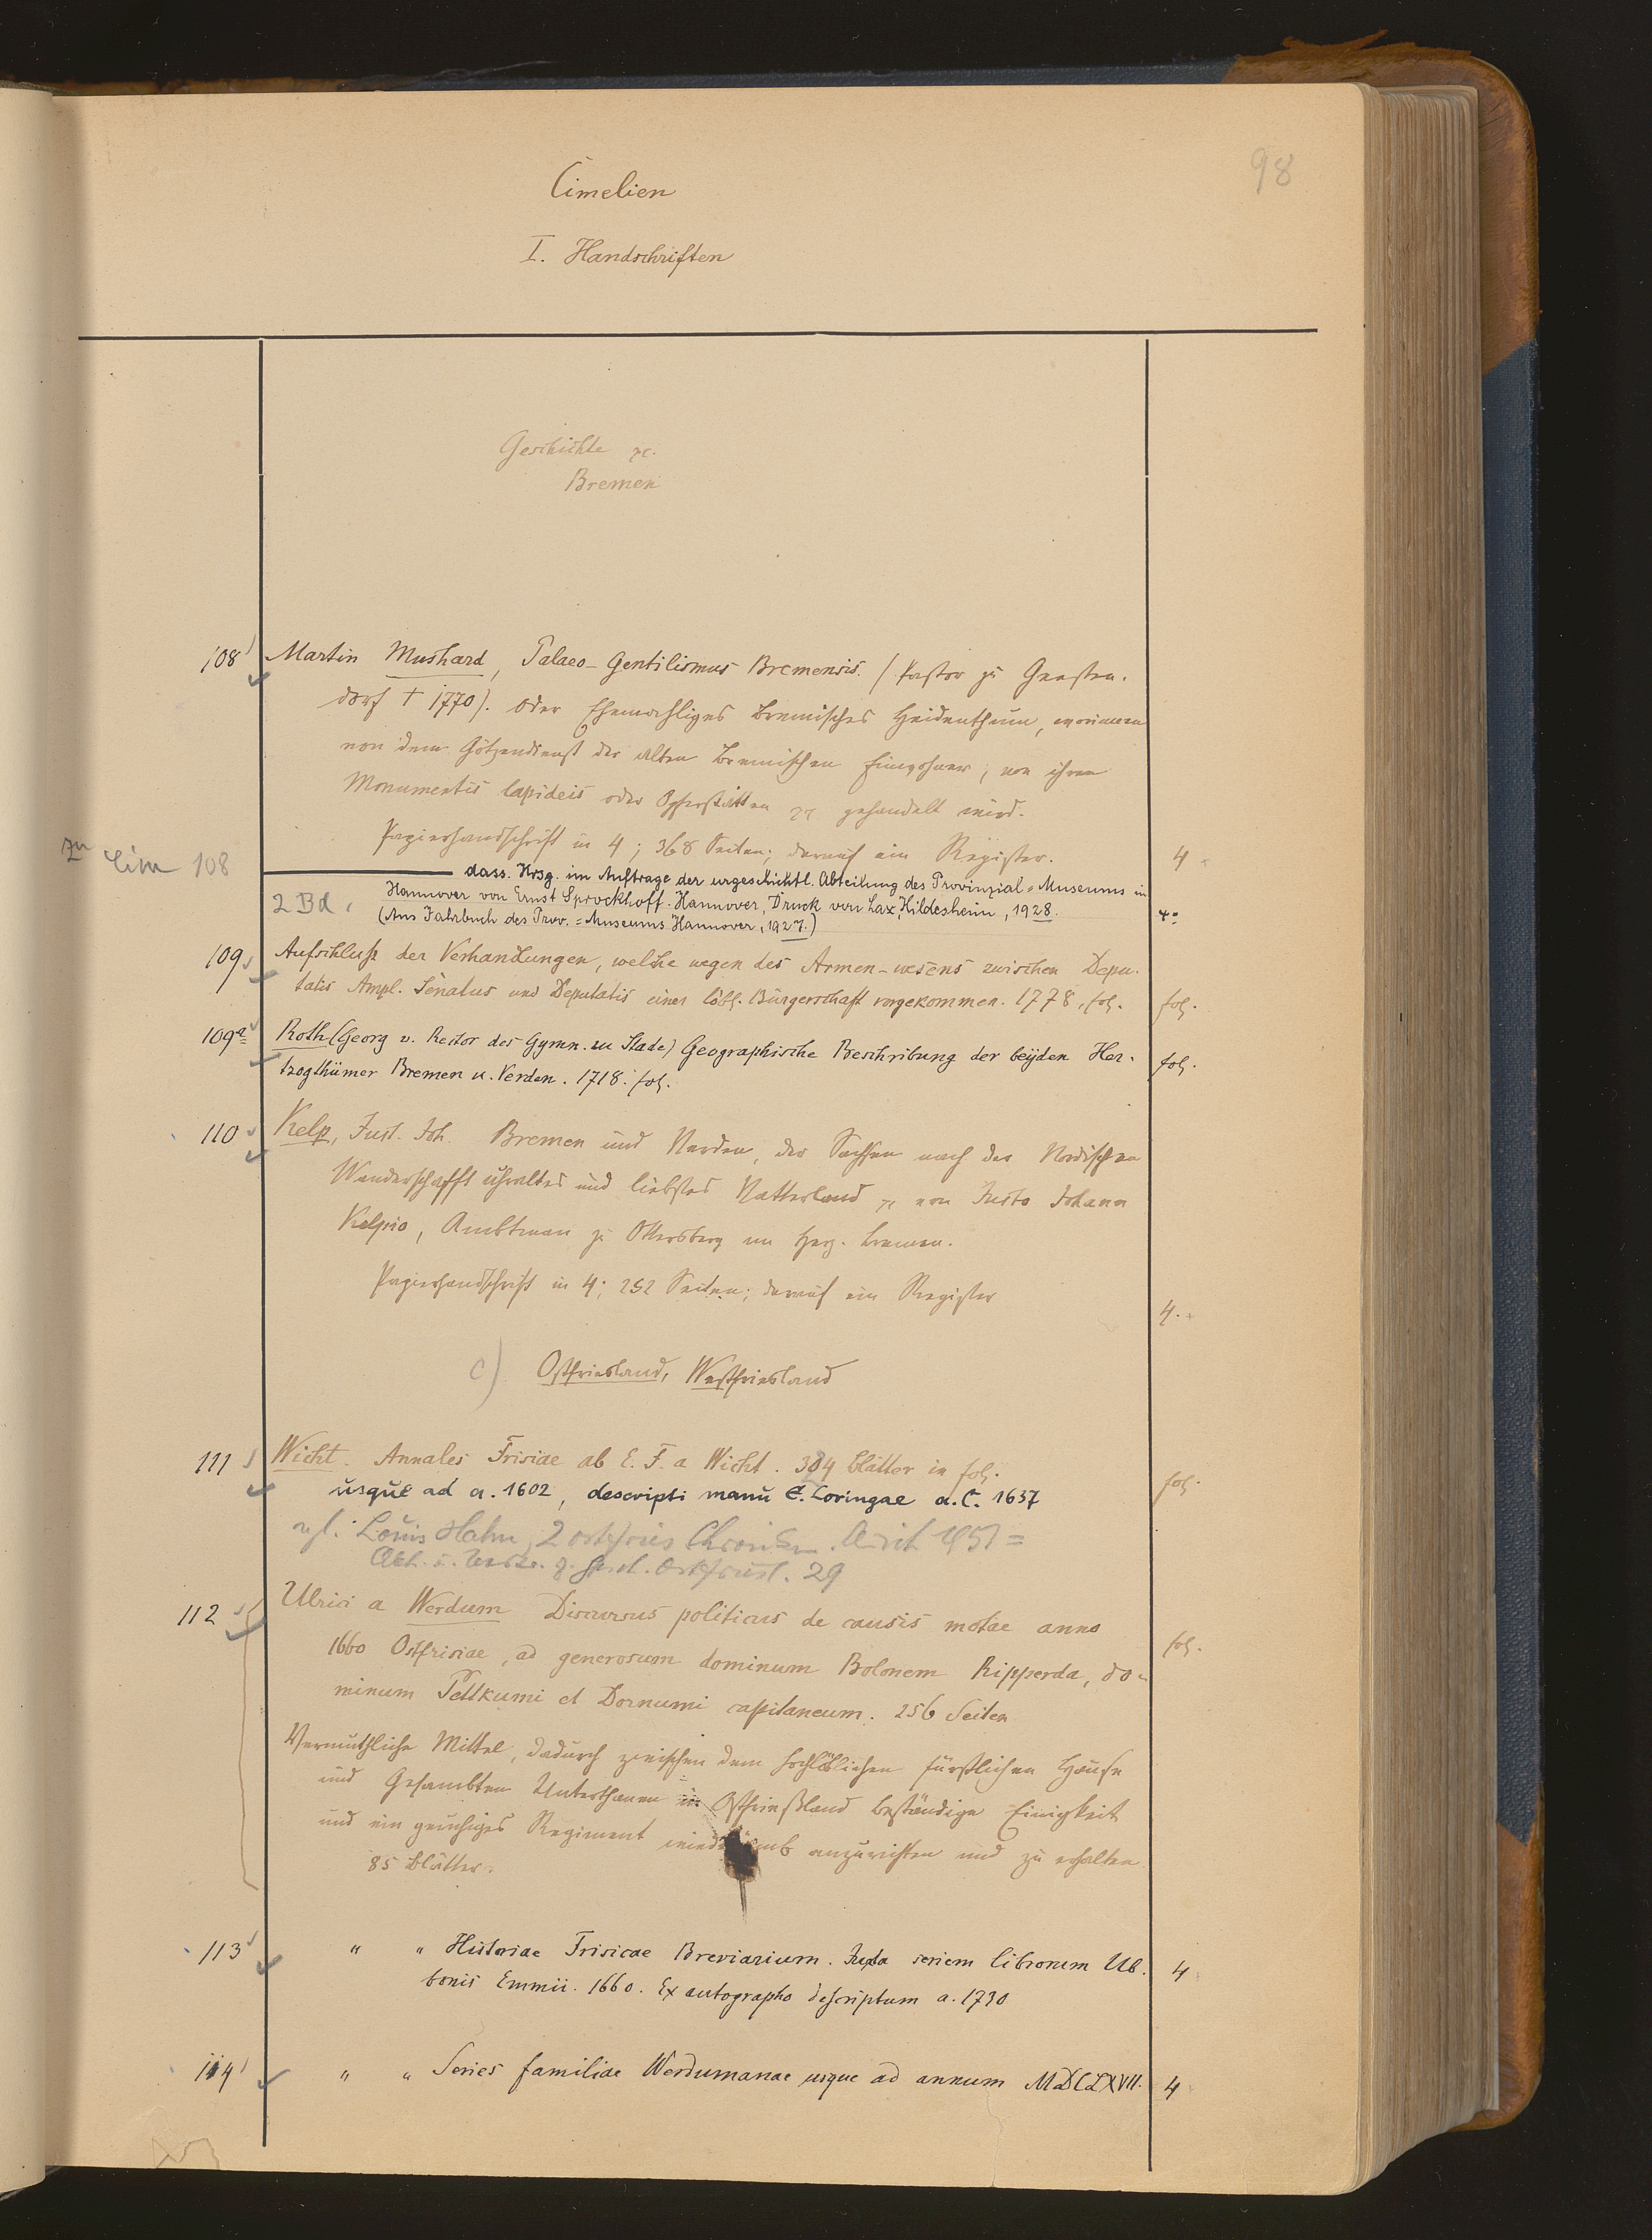 98
Cimelien
I. Handschriften
Geschichte pc.
Bremen
108 Martin Mushard, Palaeo-Gentilismus Bremensis. (Pastor zu Geesten-
dorf † 1770). oder Ehemahliges bremisches Heidenthum, worinnen
von dem Götzendienst der alten Bremischen Einwohner, von ihren
Monumentis lapideis oder Opferstätten pc gehandelt wird.
Papierhandschrift in 4; 368 Seiten; darauf ein Register. 4
zu Cim 108
dass. Hrsg. im Auftrage der urgeschichtl. Abteilung des Provinzial-Museums in
2 Bd. Hannover von Ernst Sprockhoff. Hannover, Druck von Lax, Hildesheim, 1928. 4°
(Aus Jahrbuch des Prov.=Museums Hannover, 1927.)
109 Aufschluss der Verhandlungen, welche wegen des Armen-wesens zwischen Depu-
tatis Ampl. Senatus und Deputatis einer löbl. Bürgerschaft vorgekommen. 1778, fol. fol.
109a Roth (Georg v. Rector des Gymn. zu Stade) Geographische Beschribung der beÿden Her- fol.
tzogthümer Bremen u. Verden. 1718. fol.
110 Kelp, Just. Joh. Bremen und Verden, der Sachsen nach der Nordischen
Wanderschafft uhraltes und liebstes Vatterland pc von Justo Johann
Kelpio, Ambtman zu Ottersberg im Herz. Bremen.
Papierhandschrift in 4; 252 Seiten; darauf ein Register 4.
c) Ostfriesland, Westfriesland
111 Wicht. Annales Frisiae ab E. F. a Wicht. 384 Blätter in fol. fol.
usque ad a. 1602, descripti manu E. Loringae a. C. 1637
vgl. Louis Hahn, 2 ostfries Chroniken. Aurich 1951 =
Abh. u. Vortr. z. Gesch. Ostfriesl. 29
112 Ulrici a Werdum Discursus politicus de causis motae anno
1660 Ostfrisiae, ad generosum dominum Bolonem Ripperda, do- fol.
minum Pettkumi et Dornumi capitaneum. 256 Seiten
Vermuthliche Mittel, dadurch zwischen dem hochlöblichen fürstlichen Hause
und Gesambten Unterthanen in Ostfrießland beständige Einigkeit
und ein geruhiges Regiment anzurichten und zu erhalten
85 Blätter.
113 " " Historiae Frisicae Breviarium. Juxta seriem librorum Ub- 4
bonis Emmii. 1660. Ex autographo descriptum a. 1730
114 " " Series familiae Werdumanae usque ad annum MDCLXVII. 4